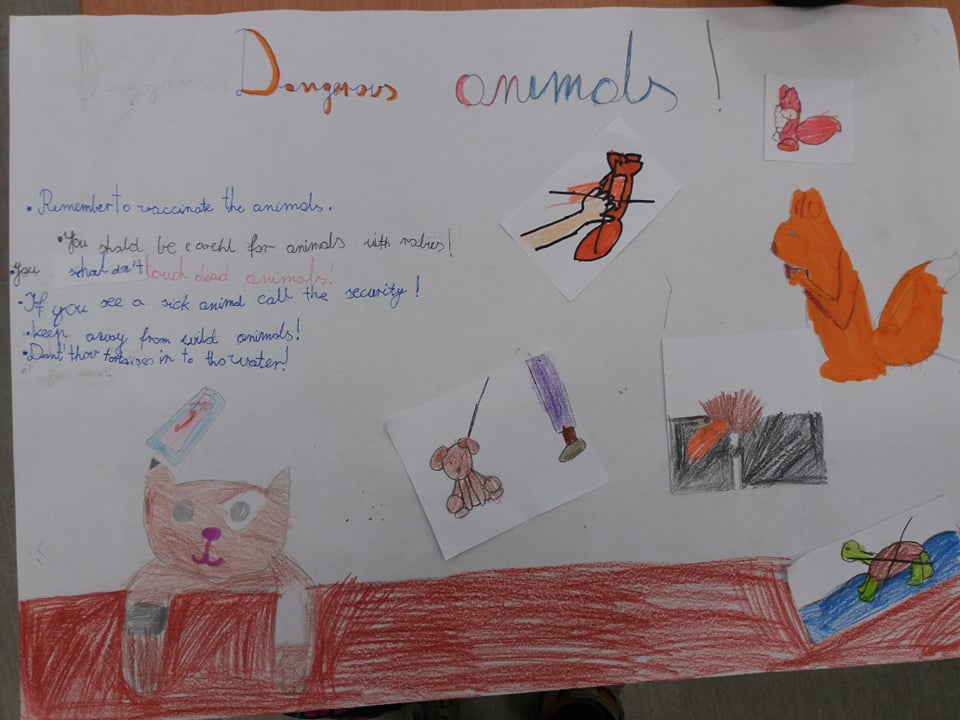 Dangerous Dangerous animals!
• Remember to vaccinate the animals.
• You shold be careful for animals with rabies!
• You shouldn't touch dead animals!
• If you see a sick animal call the security!
• keep away from wild animals!
• Dont' thow tortoises in to the water!